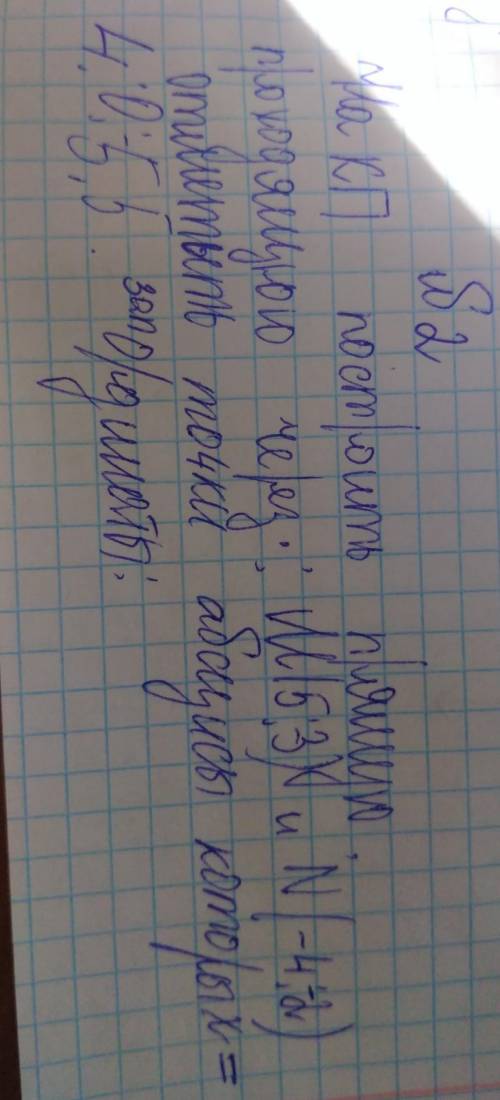 №2
На КП построить прямую,
проходящую через ; М(5;3) и N(-4;-2)
отметить точки абсцисы которых =
4; 0; -5; 5. зап ординаты;